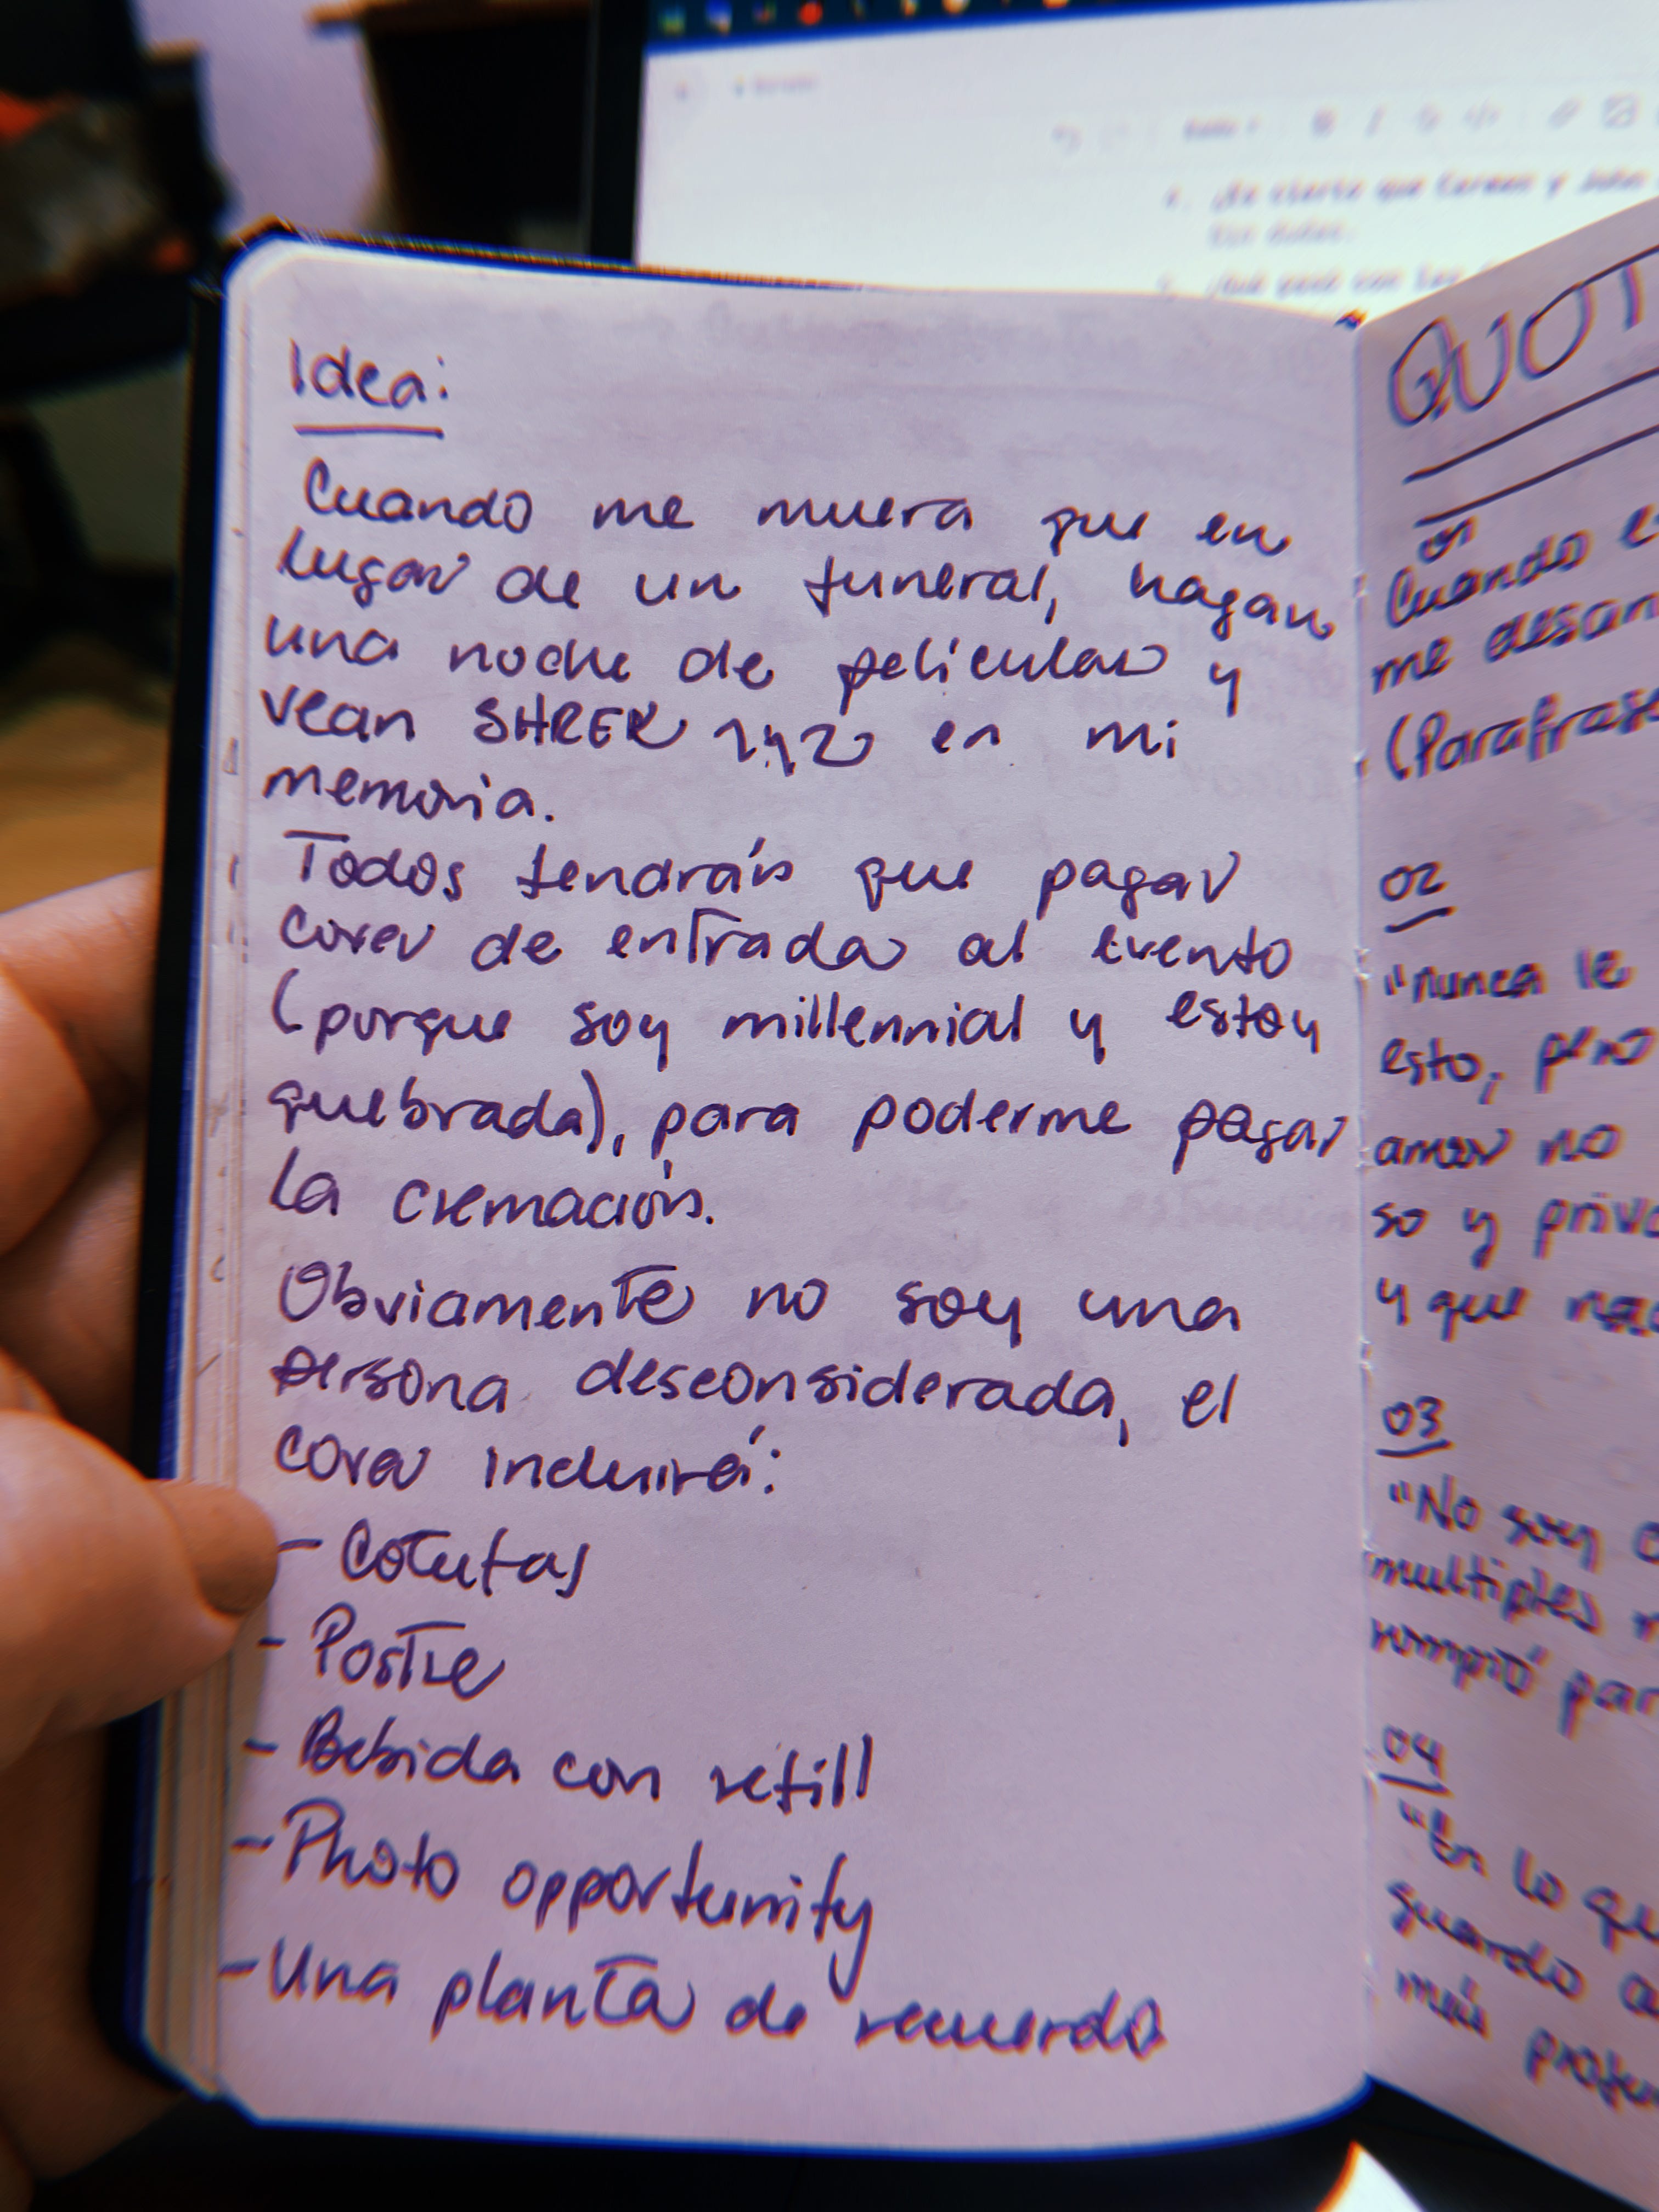 Idea:
Cuando me muera que en
lugar de un funeral, hagan
una noche de películas y
vean SHREK 1 y 2 en mi
memoria.
Todos tendrán que pagar
cover de entrada al evento
(porque soy millennial y estoy
quebrada), para poderme pagar
la cremación.
Obviamente no soy una
persona desconsiderada, el
cover incluirá:
- Cotufas
- Postre
- Bebida con refill
- Photo opportunity
- Una planta de recuerdo
QUOT
01
Cuando e
me desan
(Parafrase
02
"nunca le
esto, pero
amor no
so y priva
y que
03
"No soy
multiples
rompió par
04
"En lo qu
guardo a
más profu
¿Es cierto que Carmen y John
Sin dudas.
¿Qué pasó con